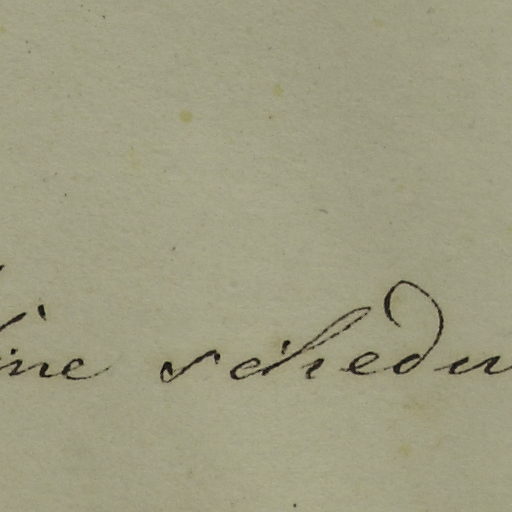 ine schedu